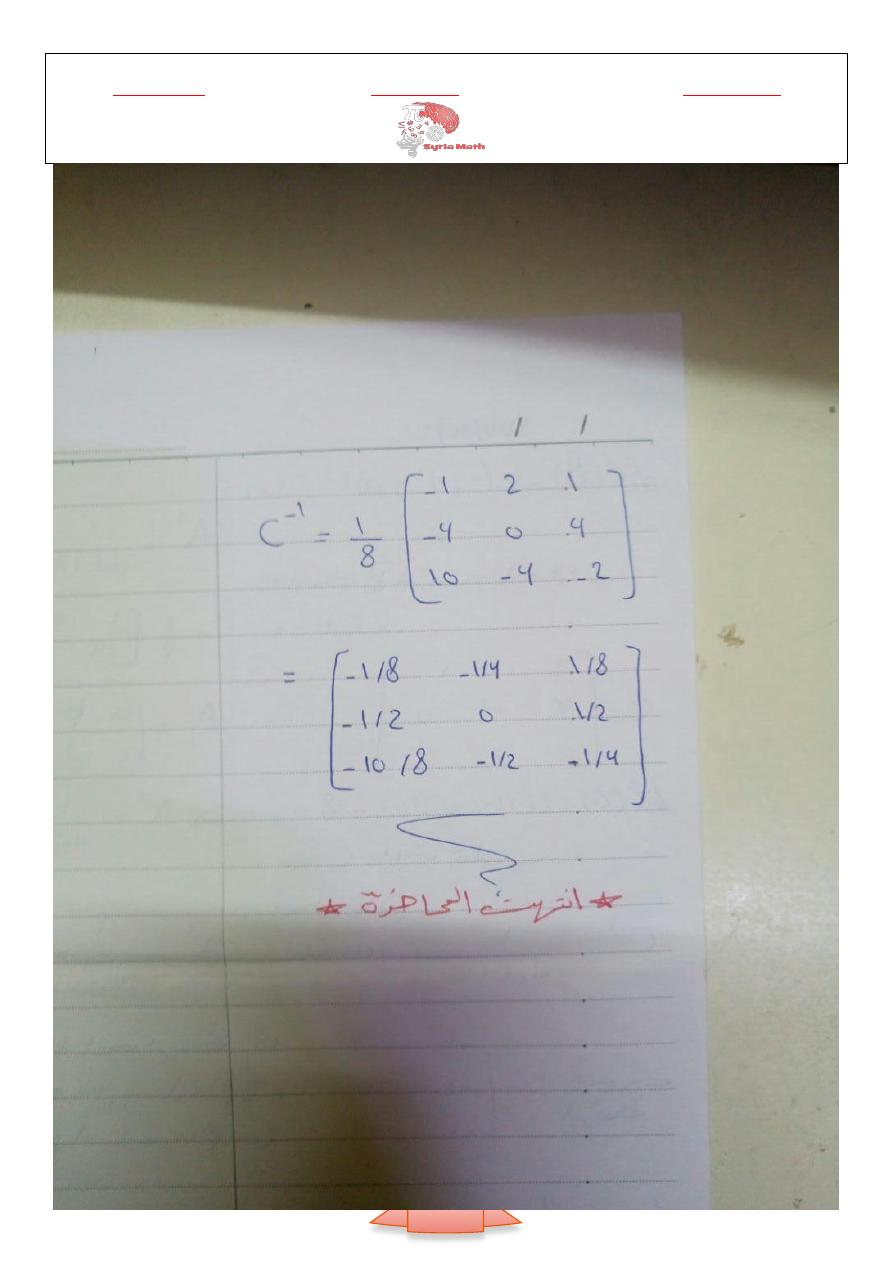 Syria Math
/ /
C⁻¹ = 1/8 [ -1 2 1
-4 0 4
10 -4 -2 ]
= [ -1/8 -1/4 1/8
-1/2 0 1/2
-10/8 -1/2 -1/4 ]
* انتهت المحاضرة *